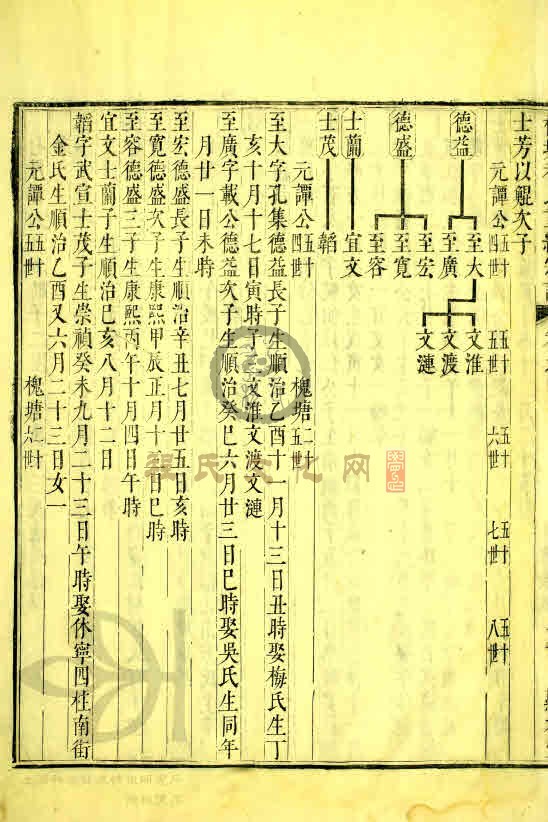 士芳以鯤次子
元譚公五十四世 五十五世 五十六世 五十七世 五十八世
德益 至大 文淮
文渡
文漣
至廣
德盛 至宏
至寬
至容
士蕳 宜文
士茂 韜
元譚公五十四世 槐塘二十五世
至大字孔集德益長子生順治乙酉十一月十三日丑時娶梅氏生丁
亥十月十七日寅時子三文淮文渡文漣
至廣字載公德益次子生順治癸巳六月廿三日巳時娶吳氏生同年
月廿一日未時
至宏德盛長子生順治辛丑七月廿五日亥時
至寬德盛次子生康熙甲辰正月十 日巳時
至容德盛三子生康熙丙午十月四日午時
宜文士蕳子生順治己亥八月十二日
韜字武宣士茂子生崇禎癸未九月二十三日午時娶休寧四柱南街
金氏生順治乙酉又六月二十三日女一
元譚公五十五世 槐塘二十六世
程氏文化网